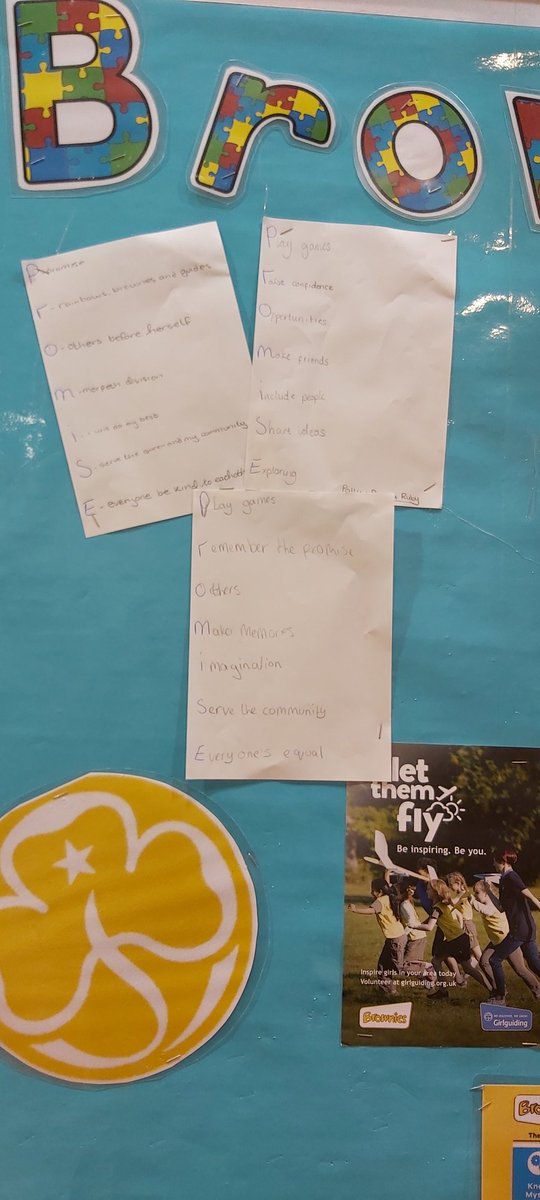 Bro
Promise
r - rainbows, brownies and guides
O - others before herself
M - morpeth division
i - will do my best
S - serve the queen and my community
E - everyone be kind to each
Play games
raise confidence
Opportunities
Make friends
include people
Share ideas
Exploring
Ruby
Play games
remember the promise
Others
Make Memores
imagination
Serve the community
Everyone's equal
let
them
fly
Be inspiring. Be you.
Inspire girls in your area today
Volunteer at girlguiding.org.uk
Brownies
Girlguiding
Bro
The
Kn
My